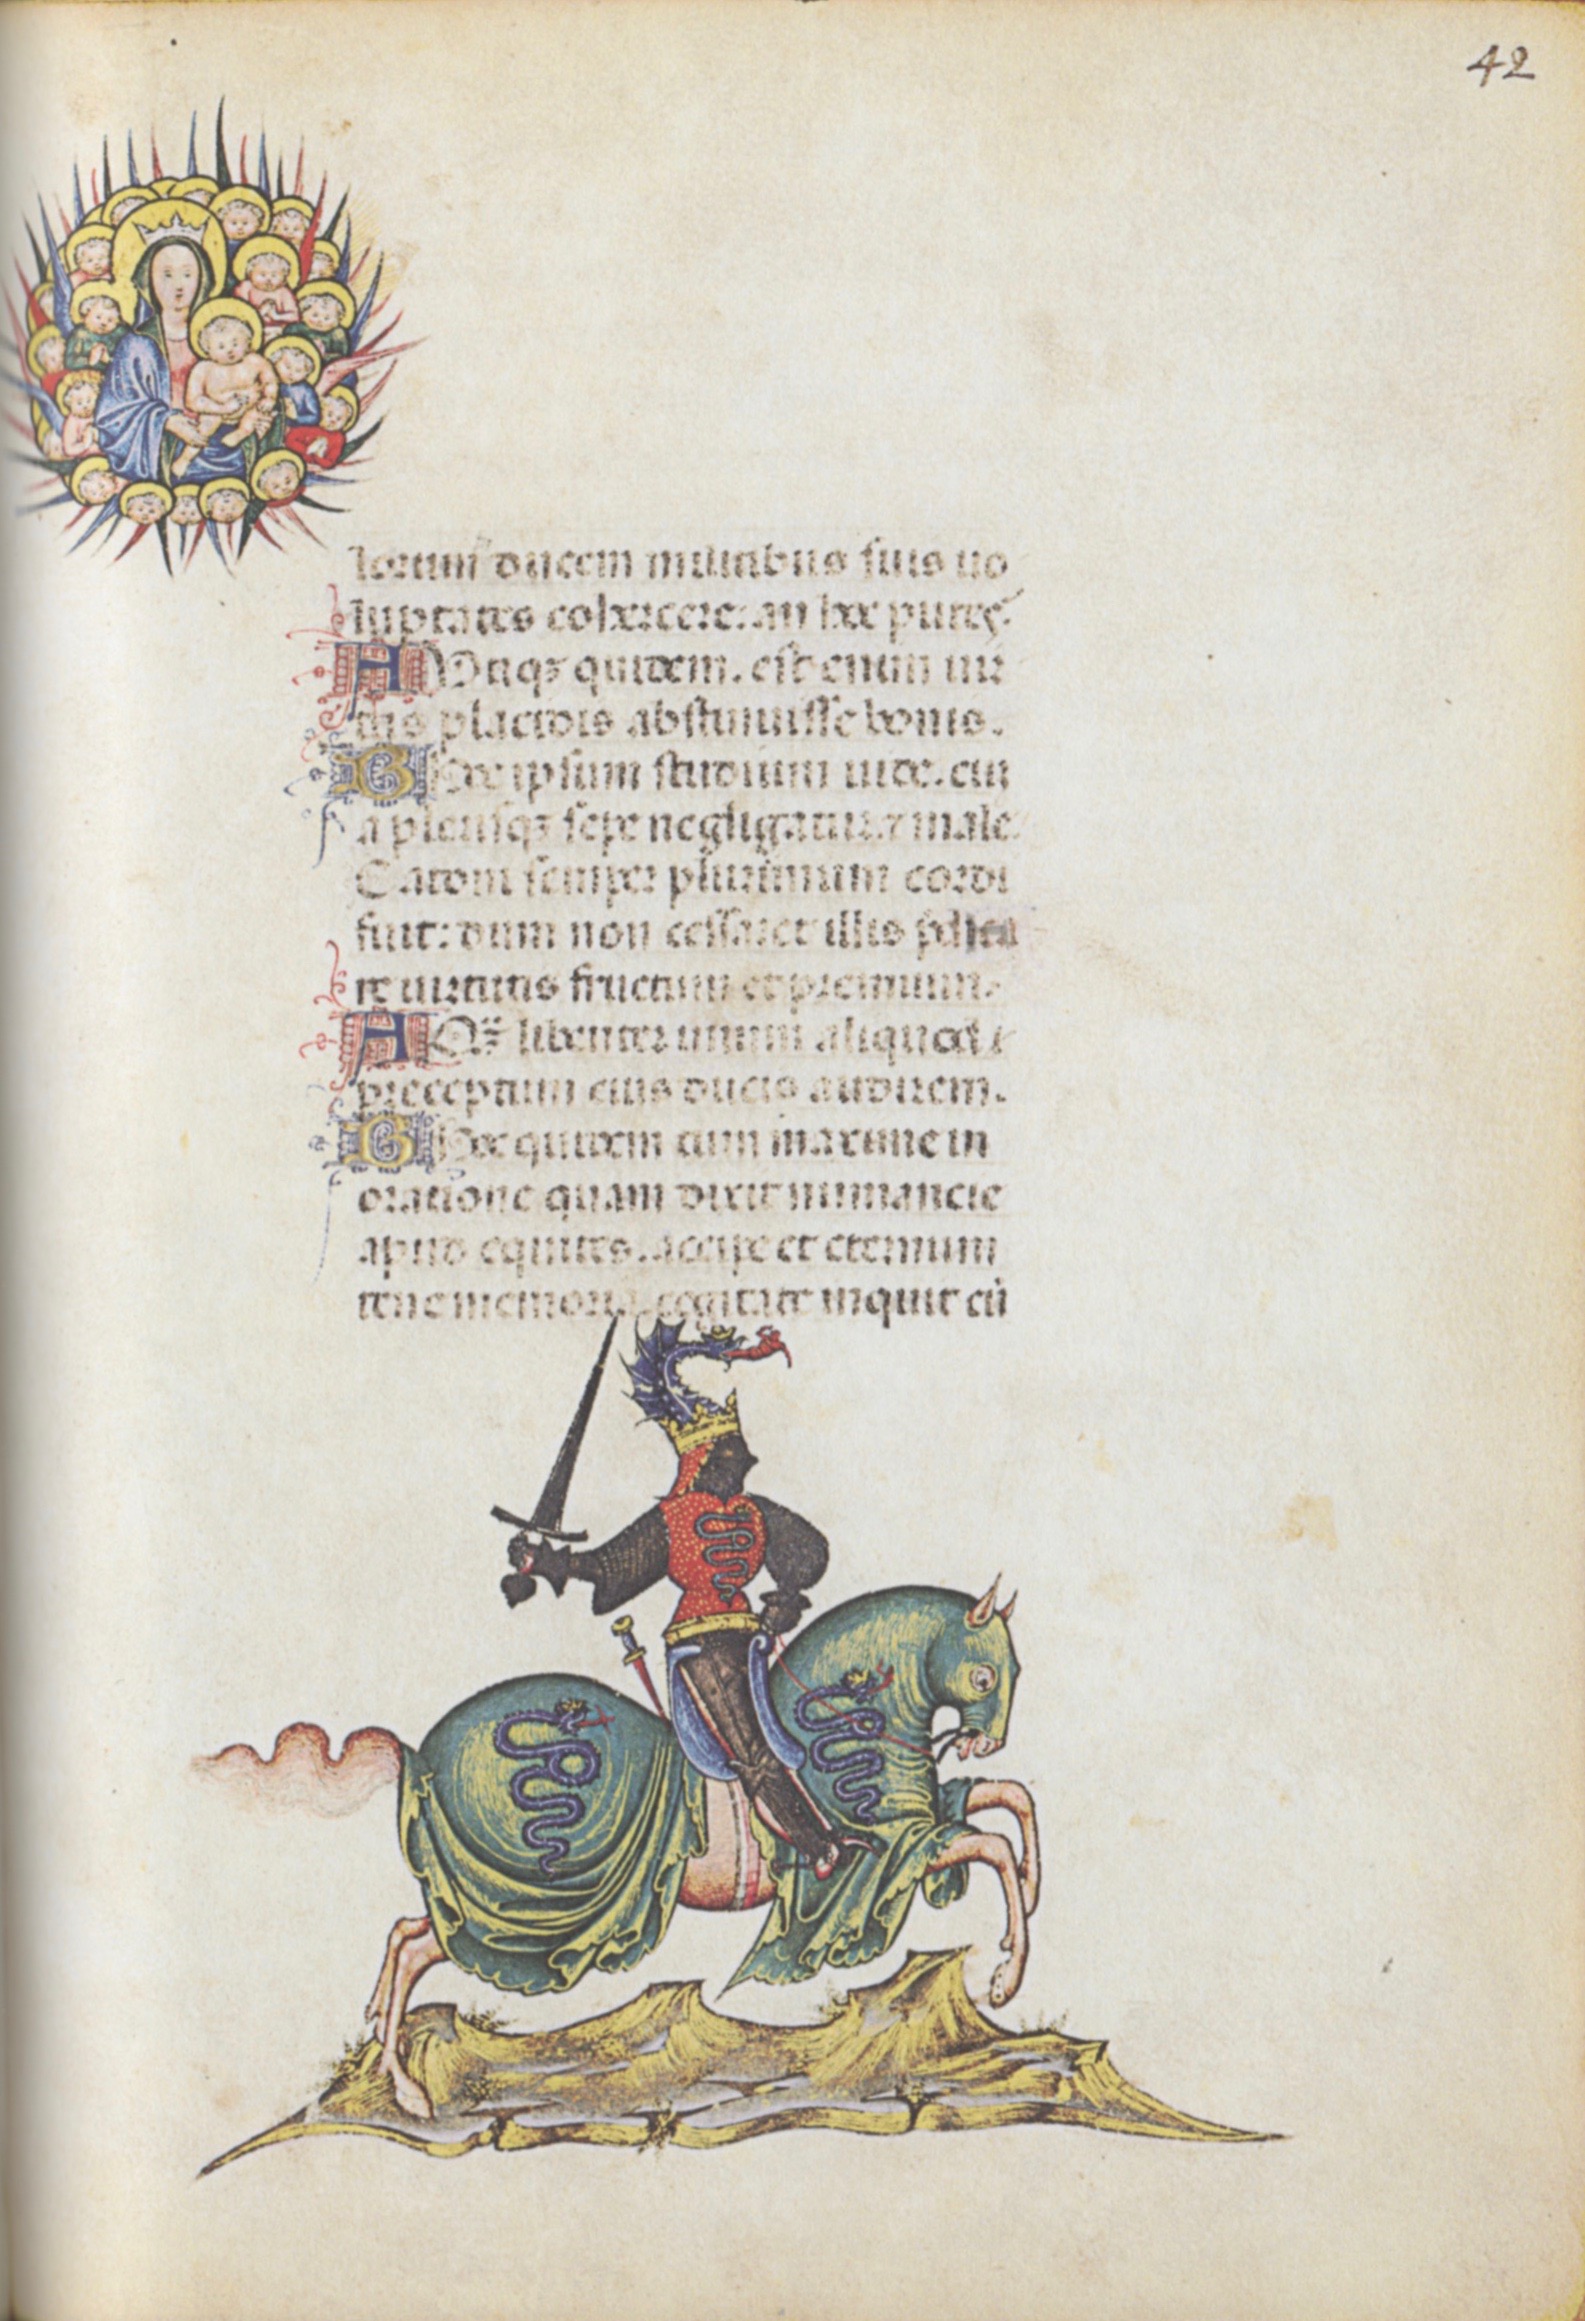 42
lorum ducem militibus suis uo
luptates cohercere: an hec putes.
A Utiqȝ quidem. est enim uir
tus placidis abstinuisse bonis.
G Hoc ipsum studium uite. cui
a plerisqȝ sepe negligatur. ⁊ male
Catoni semper plurimum cordi
fuit: dum non cessaret illis
te uirtutis fructum et premium.
A libenter unum aliquod
preceptum eius ducis audirem.
G quidem cum maxime in
oratione quam dixit numancie
apud equites. accipe et eternum
tene memoria. cogitate inquit cū